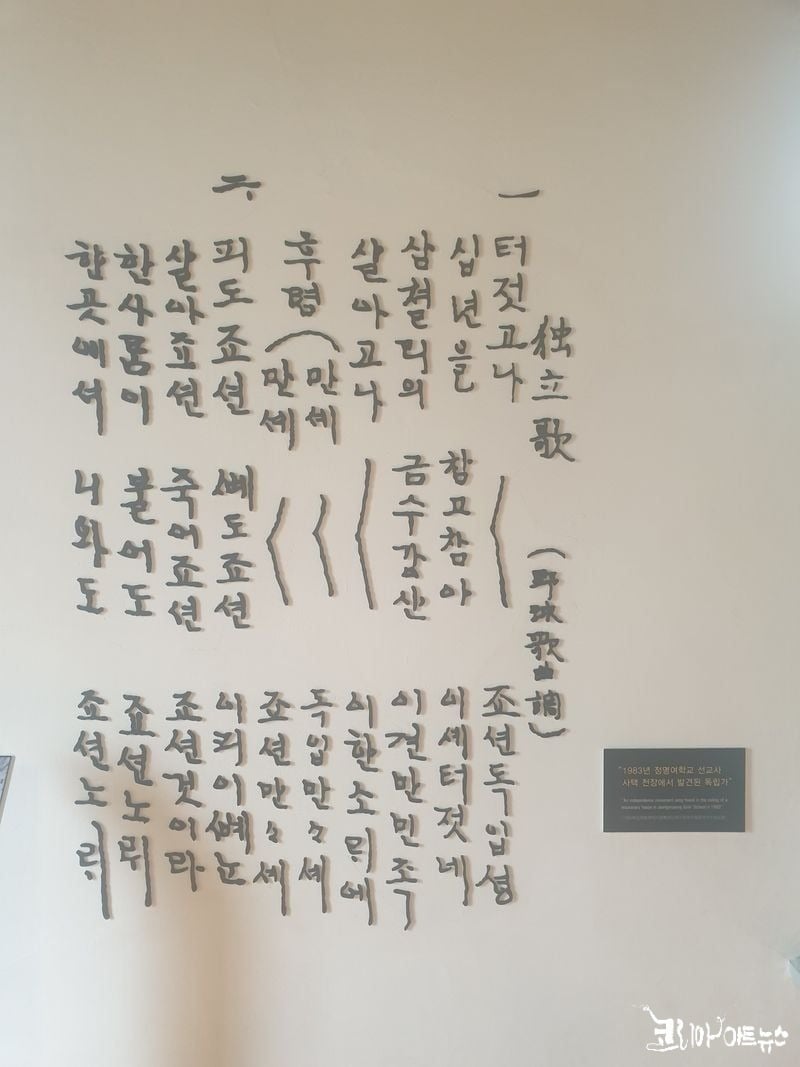 独立歌 (野球歌曲調)
一 터젓고나 죠션독입셩
십년을 참고참아 이셰터젓네
삼쳘리의 금수강산 이쳔만민족
살아고나 이한소ᄅᆡ에
후렴 만세 독입만々세
만셰 죠션만々세
피도죠션 ᄲᅧ도죠션 이피이ᄲᅧ는
살아죠션 죽어죠션 죠션것이라
한사ᄅᆞᆷ이 불어도 죠션노ᄅᆡ
한곳에셔 니와도 죠션노ᄅᆡ
"1983년 정명여학교 선교사
사택 천장에서 발견된 독립가"
"An independence movement song found in the ceiling of a
missionary house in Jeongmyeong Girls' School in 1983"
코리아아트뉴스